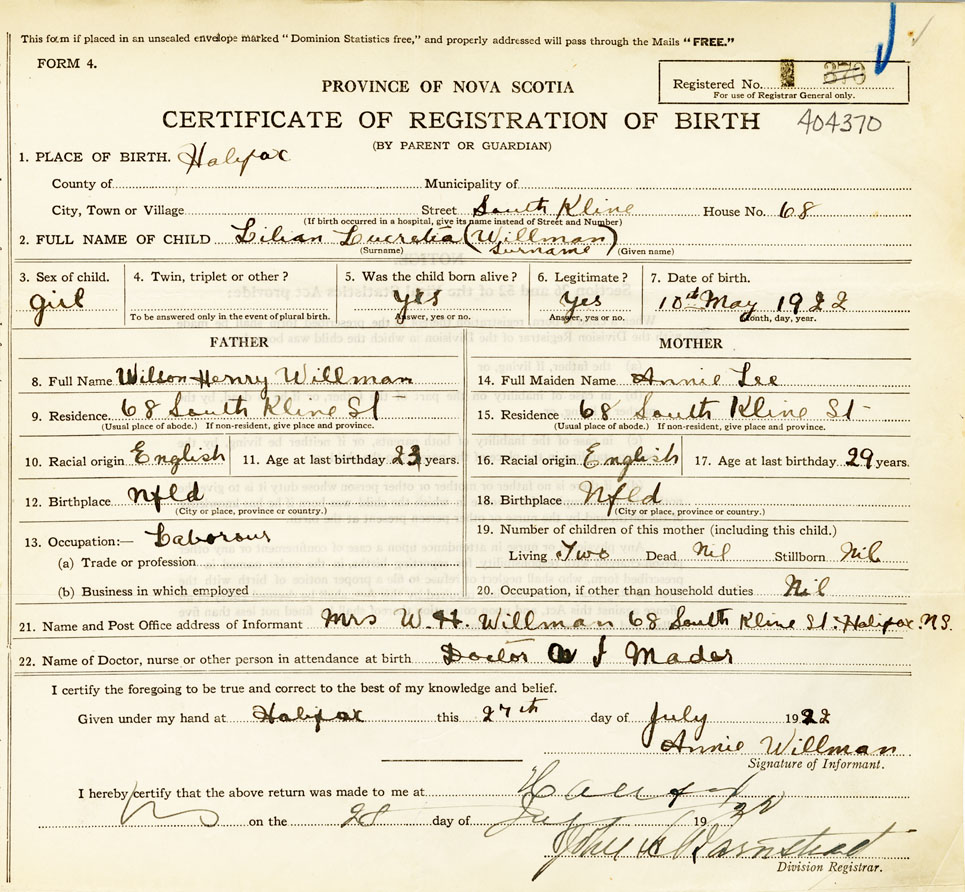 This form if placed in an unsealed envelope marked “Dominion Statistics free,” and properly addressed will pass through the Mails “FREE.”
FORM 4.
Registered No. 370
For use of Registrar General only.
PROVINCE OF NOVA SCOTIA
CERTIFICATE OF REGISTRATION OF BIRTH 404370
(BY PARENT OR GUARDIAN)
1. PLACE OF BIRTH. Halifax
County of Municipality of
City, Town or Village Street South Kline House No. 68
(If birth occurred in a hospital, give its name instead of Street and Number)
2. FULL NAME OF CHILD Lilian Lucretia (Willman)
(Surname) Surname (Given name)
3. Sex of child. 4. Twin, triplet or other? 5. Was the child born alive? 6. Legitimate? 7. Date of birth.
girl yes yes 10th May 1922
To be answered only in the event of plural birth. Answer, yes or no. Answer, yes or no. Month, day, year.
FATHER MOTHER
8. Full Name Wilson Henry Willman 14. Full Maiden Name Annie Lee
9. Residence. 68 South Kline St 15. Residence 68 South Kline St
(Usual place of abode.) If non-resident, give place and province. (Usual place of abode.) If non-resident, give place and province.
10. Racial origin English 11. Age at last birthday 23 years. 16. Racial origin English 17. Age at last birthday 29 years.
12. Birthplace Nfld 18. Birthplace Nfld
(City or place, province or country.) (City or place, province or country.)
13. Occupation:— Laborour 19. Number of children of this mother (including this child.)
(a) Trade or profession Living Two Dead Nil Stillborn Nil
(b) Business in which employed 20. Occupation, if other than household duties Nil
21. Name and Post Office address of Informant Mrs W. H. Willman 68 South Kline St. Halifax N.S.
22. Name of Doctor, nurse or other person in attendance at birth Doctor I Mader
I certify the foregoing to be true and correct to the best of my knowledge and belief.
Given under my hand at Halifax this 27th day of July 1922
Annie Willman
Signature of Informant.
I hereby certify that the above return was made to me at Halifax
NS on the 28 day of July 1922
John Barnstead
Division Registrar.